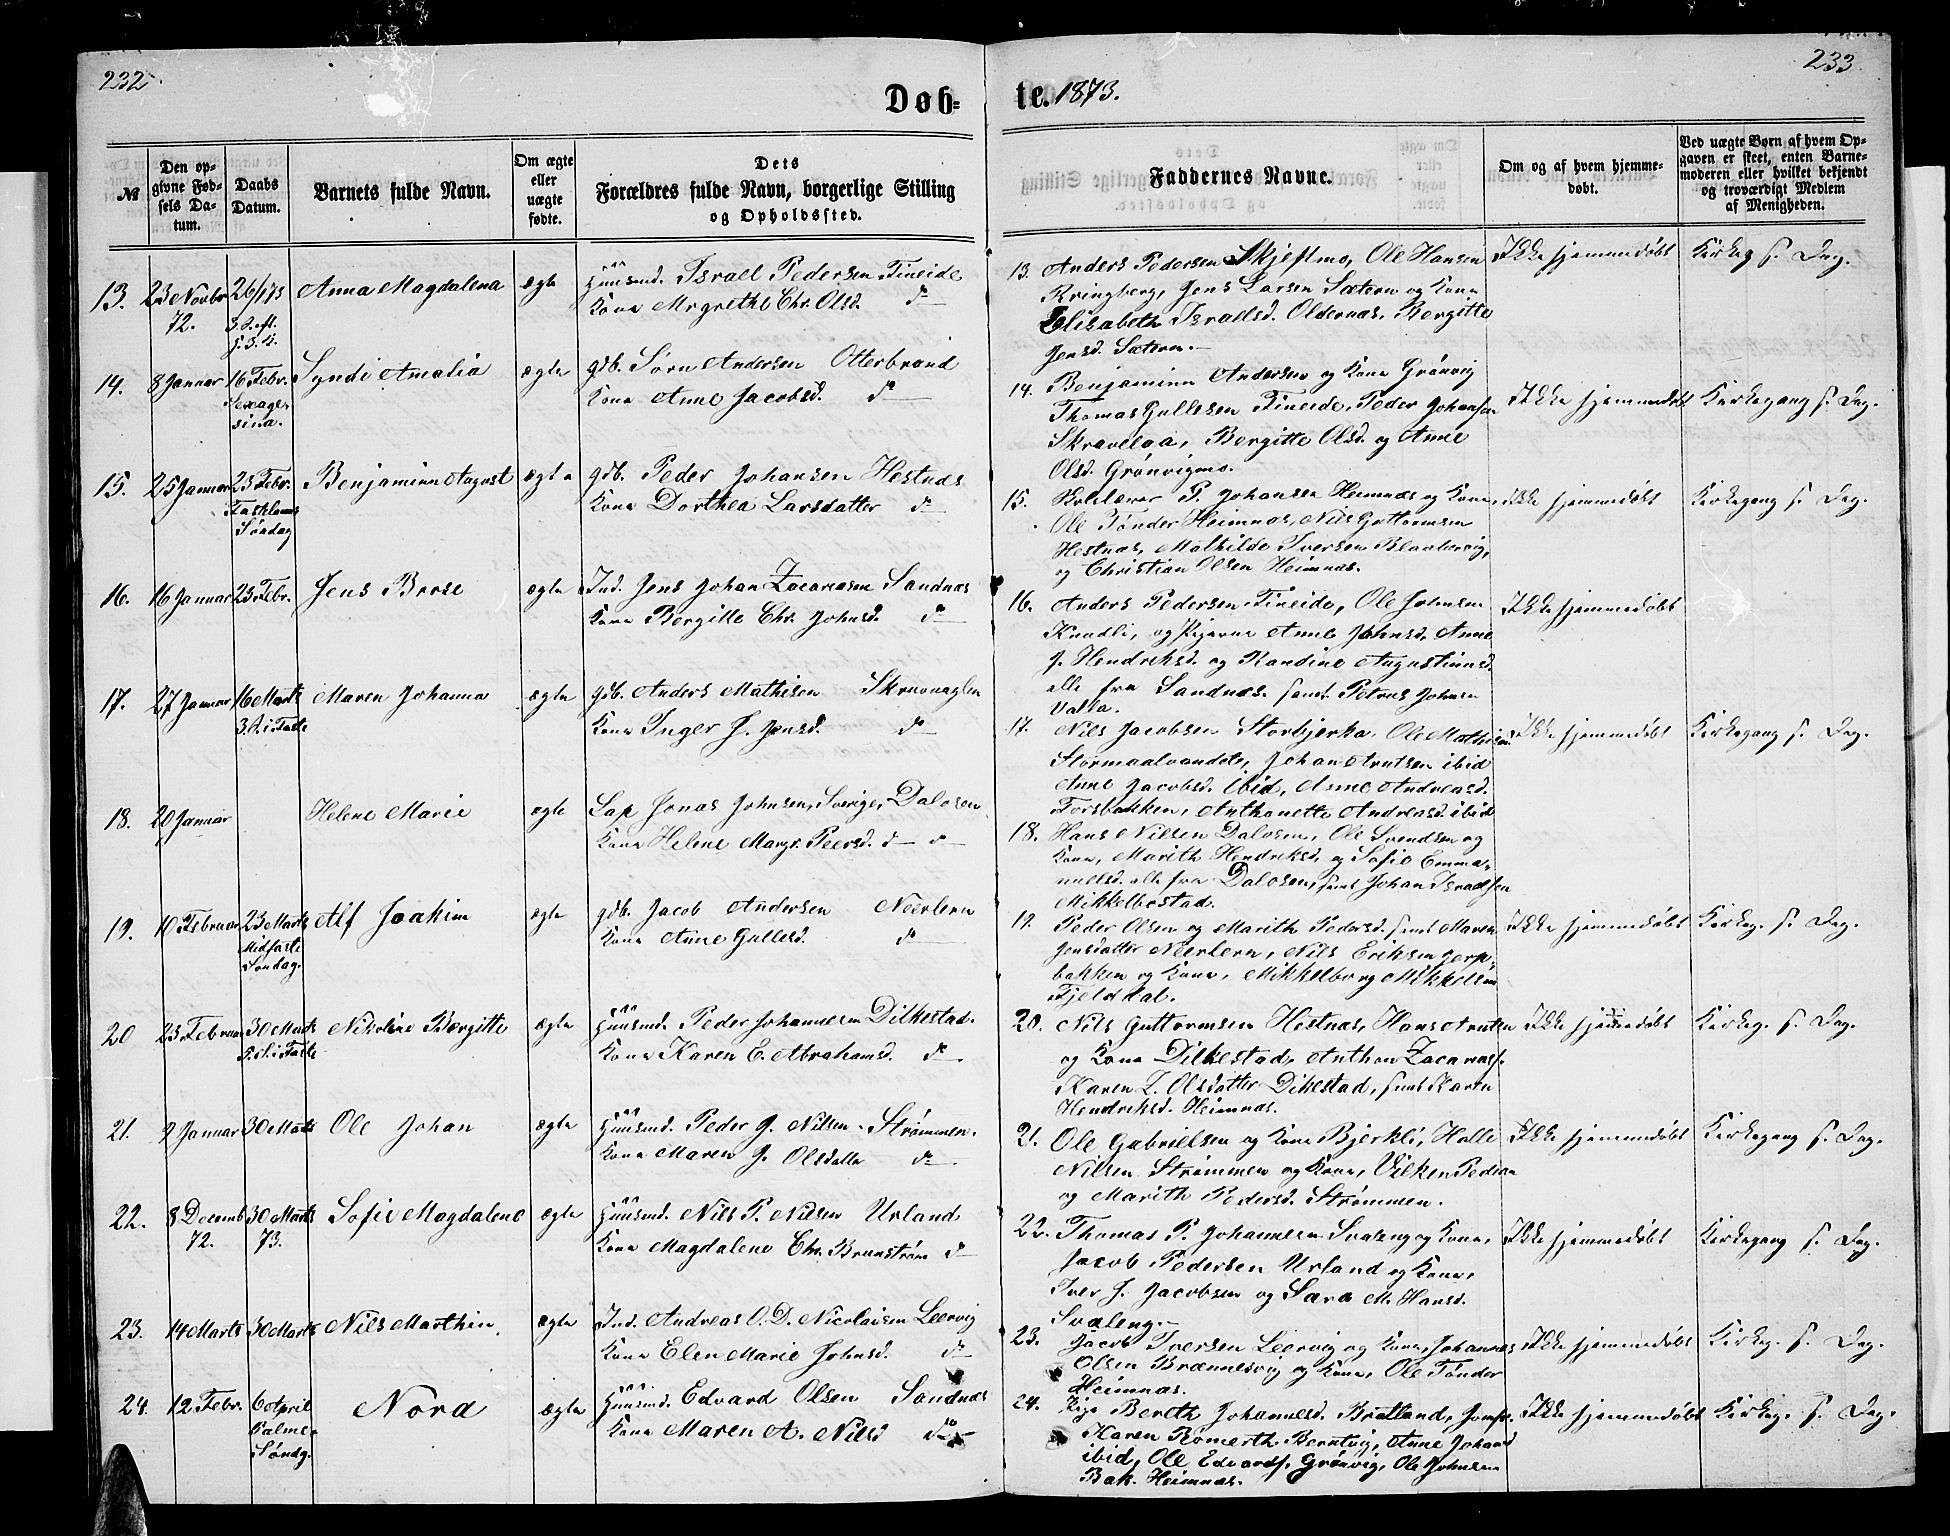 232
Døb-
№
Den op-
givne Fød-
sels Da-
tum.
Daabs
Datum.
Barnets fulde Navn.
Om ægte
eller
uægte
fødte.
Dets
Forældres fulde Navn, borgerlige Stilling
og Opholdssted.
13. 23 Novbr 26/1 73 Anna Magdalena ægte Huusmd. Israel Pedersen Fineide
72. 3 S. eft. Kone Mrgrethe Chr. Olsd. do
H. 3 K.
14. 8 Januar 16 Febr. Syndi Amalia ægte gdb. Sørn Andersen Otterbrand
Sexage- Kone Anne Jacobsd. do
sina.
15. 25 Januar 23 Febr. Benjaminn August ægte gdb. Peder Johansen Hestnæs
Fastelavns Kone Dorthea Larsdatter do
Søndag
16. 16 Januar 23 Febr. Jens Brose ægte Ind. Jens Johan Zacariasen Sandnæs
Kone Bergitte Chr. Johnsd. do
17. 27 Januar 16 Marts Maren Johanna ægte gdb. Anders Mathisen
3. S. i Faste Kone Inger J. Jensd. do
18. 20 Januar Helene Marie ægte Lap Jonas Johnsen, Sverige, Dalosen
Kone Helene Margr. Peersd. do do
19. 10 Februar 23 Marts Alf Joakim ægte gdb. Jacob Andersen Neerlern
Midfaste Kone Anne Gullesd. do
Søndag.
20 23 Februar 30 Marts Nikoline Bergitte ægte Huusmd. Peder Johannesen Dilkestad.
5 S. i Faste Kone Karen E. Abrahamsd. do
21. 9 Januar 30 Marts Ole Johan ægte Huusmd. Peder J. Nilsen Strømmen.
Kone Maren J. Olsdatter do
22. 8 Decemb 30 Marts Sofie Magdalene ægte Huusmd. Nils P. Nilsen Urland
72. 73. Kone Magdalene Chr. Brunstrøm do
23. 14 Marts 30 Marts Nils Marthin. ægte Ind. Andreas O. D. Nicolaisen Leervig
Kone Elen Marie Johnsd. do
24. 12 Febr. 6 April Nord ægte Huusmd. Edvard Olsen Sandnæs
Palme- Kone Maren A. Nilsd do
Søndg.
233
te. 1873.
Faddernes Navne.
Om og af hvem hjemme-
døbt.
Ved uægte Børn af hvem Op-
gaven er skeet, enten Barne-
moderen eller hvilket bekjendt
og troværdigt Medlem
af Menigheden.
13. Anders Pedersen Skjeflmo, Ole Hansen Ikke hjemmedøbt Kirkeg s. Dag.
Kringberg, Jens Larsen Sætern og Kone
Elisabeth Israelsd. Oldernæs, Bergitte
Jensd. Sætern.
14. Benjaminn Andersen og Kone Grønvig Ikke hjemmedøbt Kirkegang s. Dag.
Thomas Gullesen Fineide, Peder Johansen
Skravelaa, Bergitte Olsd. og Anne
Olsd. Grønvigmo.
15. P. Johansen Heimnæs og Kone, Ikke hjemmedøbt Kirkegang s. Dag.
Ole Tønder Heimnæs, Nils Guttormsen
Hestnæs, Mathilde Iversen Blaabærvig,
og Christian Olsen Heimnæs.
16. Anders Pedersen Fineide, Ole Johnsen Ikke hjemmedøbt
og Pigerne Anne Johnsd. Anne
J. Hendriksd. og Randine Augustinusd.
alle fra Sandnæs, samt Petrus Johnsen
Valla.
17. Nils Jacobsen Storbjerka, Ole Mathisen Ikke hjemmedøbt Kirkegang s. Dag.
Stormaalvandet, Johan Arntsen ibid
Anne Jacobsd. ibid, Anne Andreasd.
Forsbakken, Anthonette Andreasd ibid
18. Hans Nilsen Dalosen, Ole Svendsen og
Kone, Marith Hendriksd. og Sofie Emma-
nuelsd. alle fra Dalosen, samt Johan Israelsen
Mikkelbostad.
19. Peder Olsen og Marith Pedersd. samt Maren Ikke hjemmedøbt Kirkeg. s. Dag.
Jensdatter Neerlern, Nils Eriksen
bakken og Kone, Mikkelborg Mikkelsen
Fjelddal.
20. Nils Guttormsen Hestnæs, Hans Arntsen Ikke hjemmedøbt Kirkeg. s. Dag.
og Kone Dilkestad, Anthon Zacarias.
Karen L. Olsdatter Dikestad, samt Karen
Hendriksd. Heimnæs.
21. Ole Gabrielsen og Kone Bjerkli, Halle Ikke hjemmedøbt Kirkegang s. Dag.
Nilsen Strømmen og Kone, Vilken Pedersen
og Marith Pedersd. Strømmen.
22. Thomas P. Johannesen Svaleng og Kone, Ikke hjemmedøbt Kirkegang s. Dag.
Jacob Pedersen Urland og Kone,
Iver J. Jacobsen og Sara M. Hansd.
Svaleng.
23. Jacob Iversen Leervig og Kone, Johannes Ikke hjemmedøbt Kirkeg. s. Dag.
Olsen Brænnesvig og Kone, Ole Tønder
Heimnæs.
24. Pige Bereth Johannesd. Bratland, Jomfr. Ikke hjemmedøbt Kirkeg. s. Dag.
Karen Rømerth Berntvig, Anne Johansd
ibid, Ole Edvards. Grønvig, Ole Johnsen
Bak. Heimnæs.